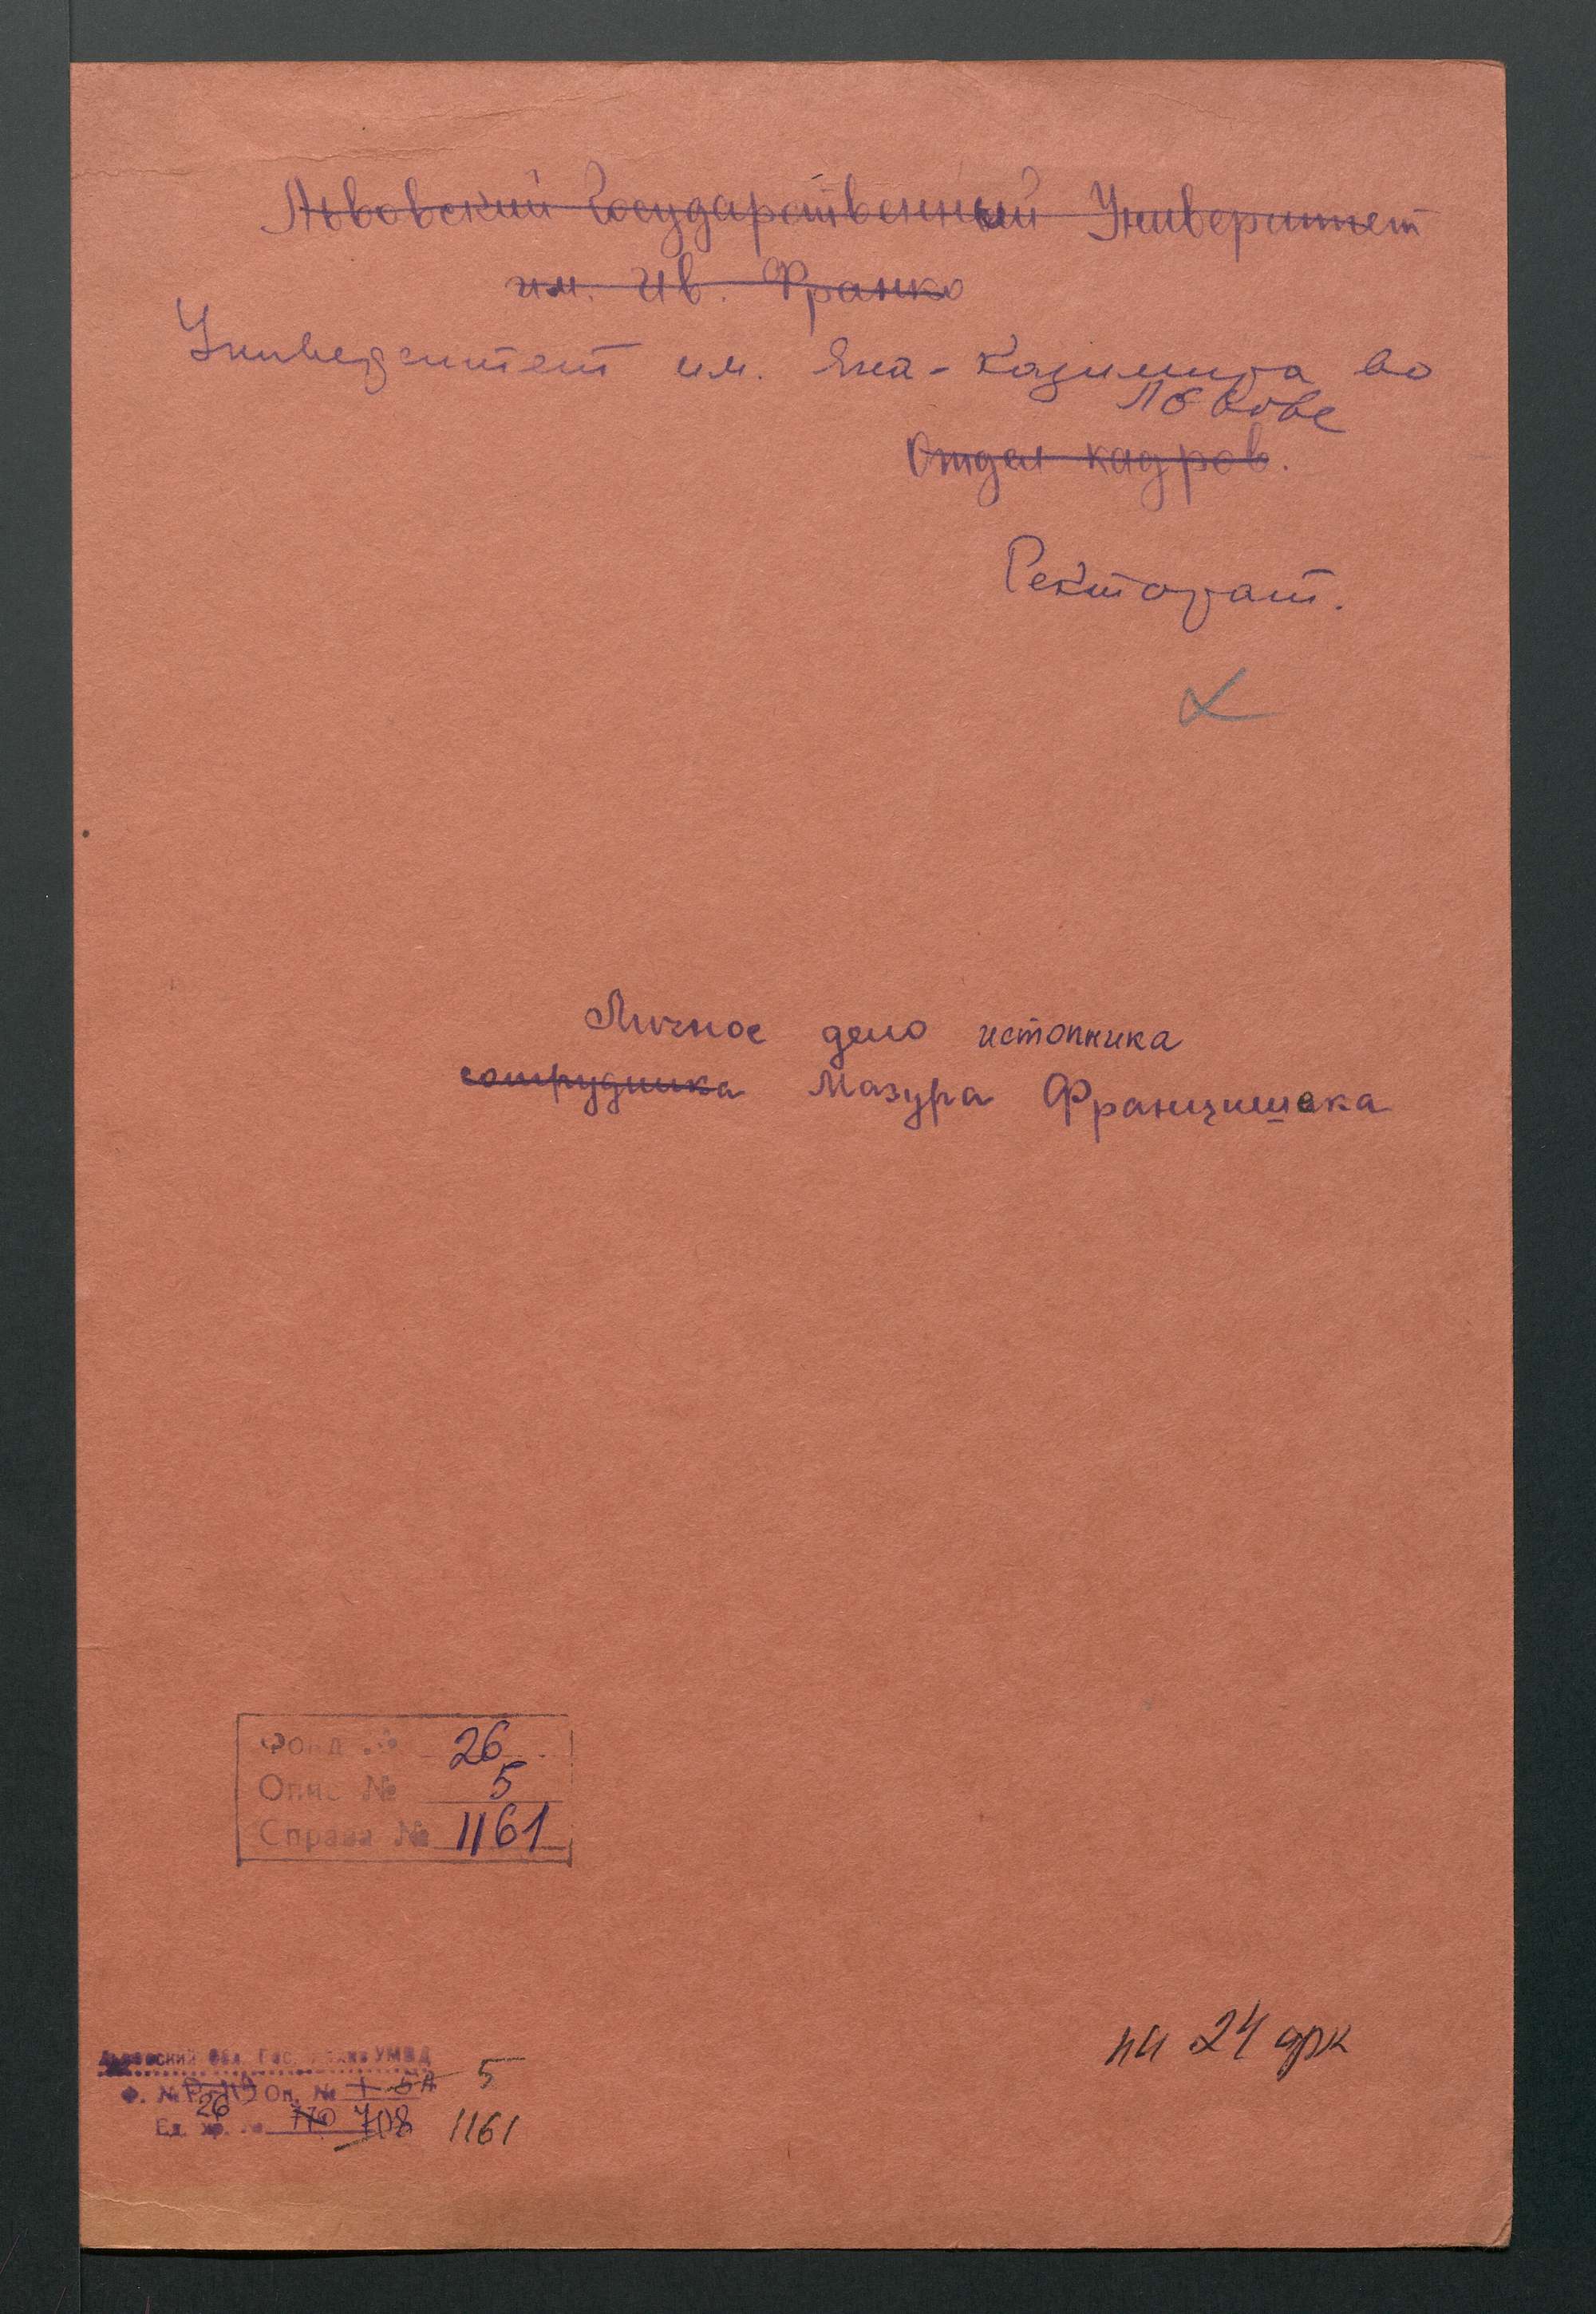 Львовский Государственный Университет
им. Ив. Франко
Университет им. Яна-Казимира во
Львове
Отдел кадров.
Ректорат.
Личное дело истопника
сотрудника Мазура Францишека
Фонд № 26
Опис № 5
Справа № 1161
на 24 арк
Львовский Обл. Гос. УМВД
Ф. № 26 Оп. № 5
Ед. хр. № 770 708 1161